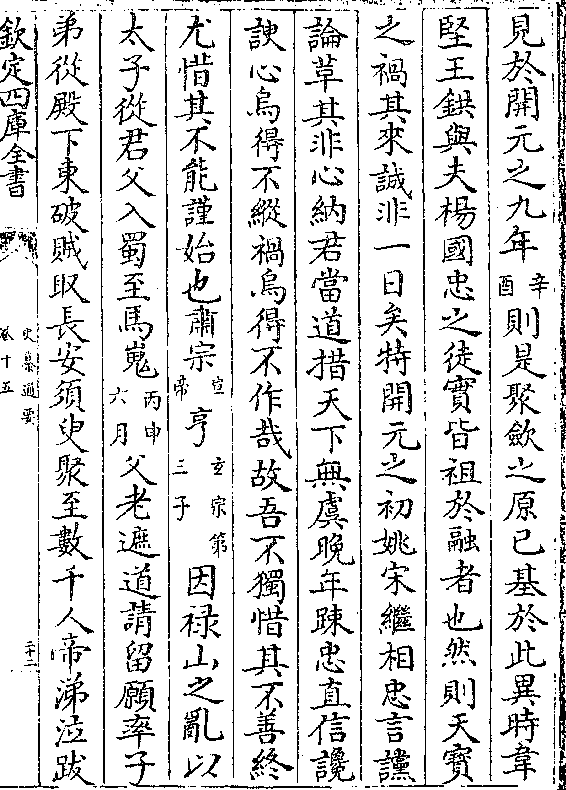 見於開元之九年辛酉則是聚歛之原已基於此異時韋
堅王鉷與夫楊國忠之徒實皆祖於融者也然則天寶
之禍其來誠非一日矣特開元之初姚宋繼相忠言讜
論革其非心納君當道措天下無虞晚年踈忠直信讒
諛心烏得不縱禍烏得不作哉故吾不獨惜其不善終
尤惜其不能謹始也肅宗宣帝亨玄宗第三子因禄山之亂以
太子從君父入蜀至馬嵬丙申六月父老遮道請留願率子
弟從殿下東破賊取長安須臾聚至數千人帝涕泣跋
欽定四庫全書
史纂通要
卷十五
二十二